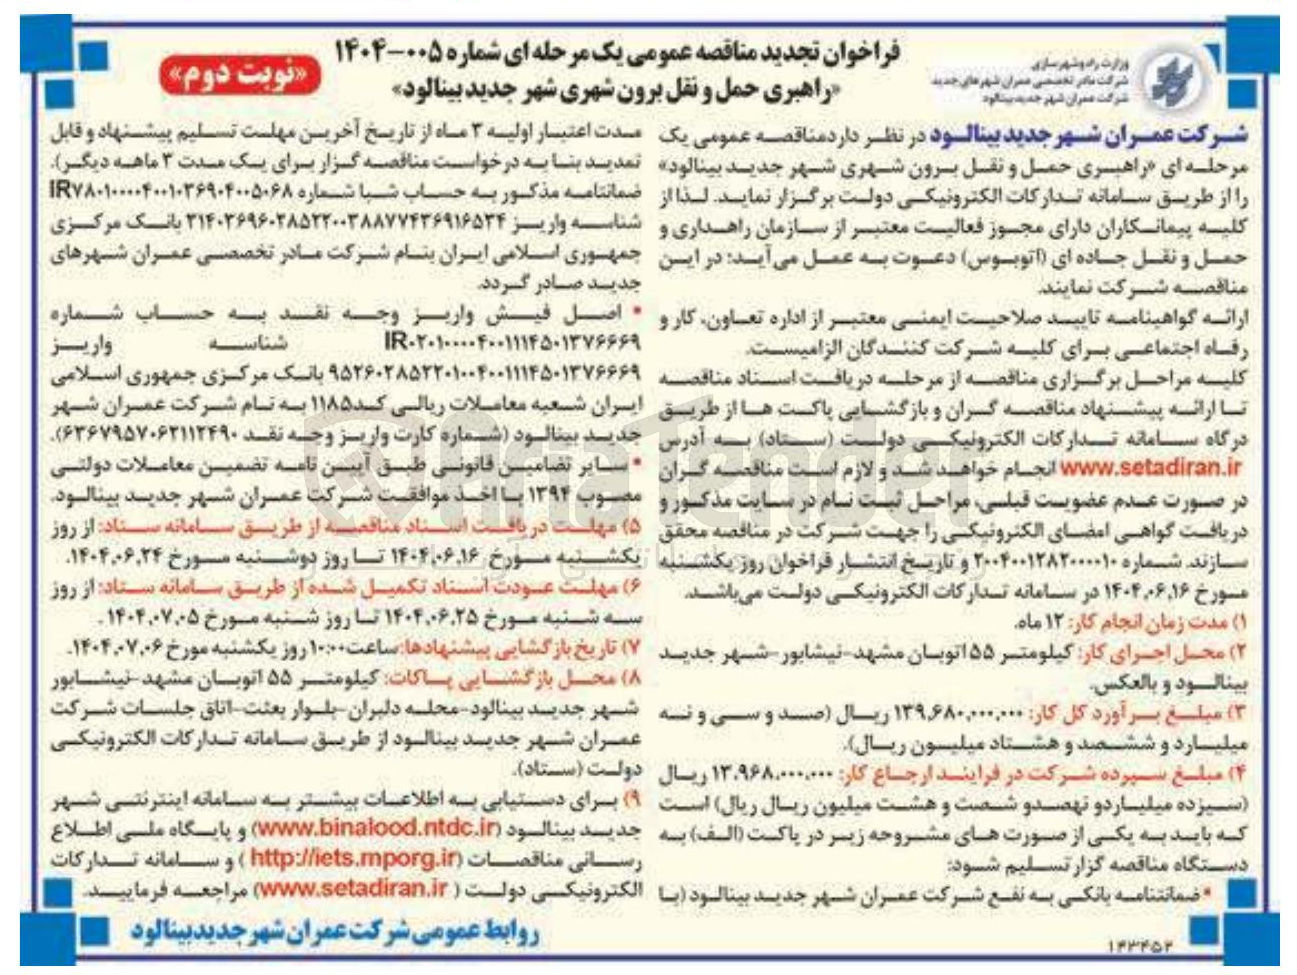 وزارت راه و شهرسازی
شرکت مادر تخصصی عمران شهرهای جدید
شرکت عمران شهر جدید بینالود
فراخوان تجدید مناقصه عمومی یک مرحله ای شماره ۰۰۵-۱۴۰۴
«راهبری حمل و نقل برون شهری شهر جدید بینالود»
«نوبت دوم»
شرکت عمران شهر جدید بینالود در نظر دارد مناقصه عمومی یک
مرحله ای «راهبری حمل و نقل برون شهری شهر جدید بینالود»
را از طریق سامانه تدارکات الکترونیکی دولت برگزار نماید. لذا از
کلیه پیمانکاران دارای مجوز فعالیت معتبر از سازمان راهداری و
حمل و نقل جاده ای (اتوبوس) دعوت به عمل می‌آید: در این
مناقصه شرکت نمایند.
ارائه گواهینامه تایید صلاحیت ایمنی معتبر از اداره تعاون، کار و
رفاه اجتماعی برای کلیه شرکت کنندگان الزامیست.
کلیه مراحل برگزاری مناقصه از مرحله دریافت اسناد مناقصه
تا ارائه پیشنهاد مناقصه گران و بازگشایی پاکت ها از طریق
درگاه سامانه تدارکات الکترونیکی دولت (ستاد) به آدرس
www.setadiran.ir انجام خواهد شد و لازم است مناقصه گران
در صورت عدم عضویت قبلی، مراحل ثبت نام در سایت مذکور و
دریافت گواهی امضای الکترونیکی را جهت شرکت در مناقصه محقق
سازند. شماره ۲۰۰۴۰۰۱۲۸۲۰۰۰۰۱۰ و تاریخ انتشار فراخوان روز یکشنبه
مورخ ۱۴۰۴.۰۶.۱۶ در سامانه تدارکات الکترونیکی دولت می‌باشد.
۱) مدت زمان انجام کار: ۱۲ ماه.
۲) محل اجرای کار: کیلومتر ۵۵ اتوبان مشهد-نیشابور-شهر جدید
بینالود و بالعکس.
۳) مبلغ برآورد کل کار: ۱۳۹.۶۸۰.۰۰۰.۰۰۰ ریال (صد و سی و نه
میلیارد و ششصد و هشتاد میلیون ریال).
۴) مبلغ سپرده شرکت در فرایند ارجاع کار: ۱۳.۹۶۸.۰۰۰.۰۰۰ ریال
(سیزده میلیاردو نهصدو شصت و هشت میلیون ریال ریال) است
که باید به یکی از صورت های مشروحه زیر در پاکت (الف) به
دستگاه مناقصه گزار تسلیم شود:
*ضمانتنامه بانکی به نفع شرکت عمران شهر جدید بینالود (با
مدت اعتبار اولیه ۳ ماه از تاریخ آخرین مهلت تسلیم پیشنهاد و قابل
تمدید بنا به درخواست مناقصه گزار برای یک مدت ۳ ماهه دیگر).
ضمانتنامه مذکور به حساب شبا شماره IR۷۸۰۱۰۰۰۰۴۰۰۱۰۳۶۹۰۴۰۰۵۰۶۸
شناسه واریز ۳۱۴۰۳۶۹۶۰۲۸۵۲۲۰۰۳۸۸۷۷۴۳۶۹۱۶۵۳۴ بانک مرکزی
جمهوری اسلامی ایران بنام شرکت مادر تخصصی عمران شهرهای
جدید صادر گردد.
* اصل فیش واریز وجه نقد به حساب شماره
IR۰۲۰۱۰۰۰۰۴۰۰۱۱۱۴۵۰۱۳۷۶۶۶۹ شناسه واریز
۹۵۲۶۰۲۸۵۲۲۰۱۰۰۴۰۰۱۱۱۴۵۰۱۳۷۶۶۶۹ بانک مرکزی جمهوری اسلامی
ایران شعبه معاملات ریالی کد۱۱۸۵ به نام شرکت عمران شهر
جدید بینالود (شماره کارت واریز وجه نقد ۶۳۶۷۹۵۷۰۶۲۱۱۲۴۹۰).
* سایر تضامین قانونی طبق آیین نامه تضمین معاملات دولتی
مصوب ۱۳۹۴ با اخذ موافقت شرکت عمران شهر جدید بینالود.
۵) مهلت دریافت اسناد مناقصه از طریق سامانه ستاد: از روز
یکشنبه مورخ ۱۴۰۴.۰۶.۱۶ تا روز دوشنبه مورخ ۱۴۰۴.۰۶.۲۴.
۶) مهلت عودت اسناد تکمیل شده از طریق سامانه ستاد: از روز
سه شنبه مورخ ۱۴۰۴.۰۶.۲۵ تا روز شنبه مورخ ۱۴۰۴.۰۷.۰۵ .
۷) تاریخ بازگشایی پیشنهادها: ساعت ۱۰:۰۰ روز یکشنبه مورخ ۱۴۰۴.۰۷.۰۶.
۸) محل بازگشایی پاکات: کیلومتر ۵۵ اتوبان مشهد-نیشابور
شهر جدید بینالود-محله دلیران-بلوار بعثت-اتاق جلسات شرکت
عمران شهر جدید بینالود از طریق سامانه تدارکات الکترونیکی
دولت (ستاد).
۹) برای دستیابی به اطلاعات بیشتر به سامانه اینترنتی شهر
جدید بینالود (www.binalood.ntdc.ir) و پایگاه ملی اطلاع
رسانی مناقصات (http://iets.mporg.ir ) و سامانه تدارکات
الکترونیکی دولت ( www.setadiran.ir) مراجعه فرمایید.
روابط عمومی شرکت عمران شهر جدید بینالود
۱۴۳۴۵۲
AriaTender